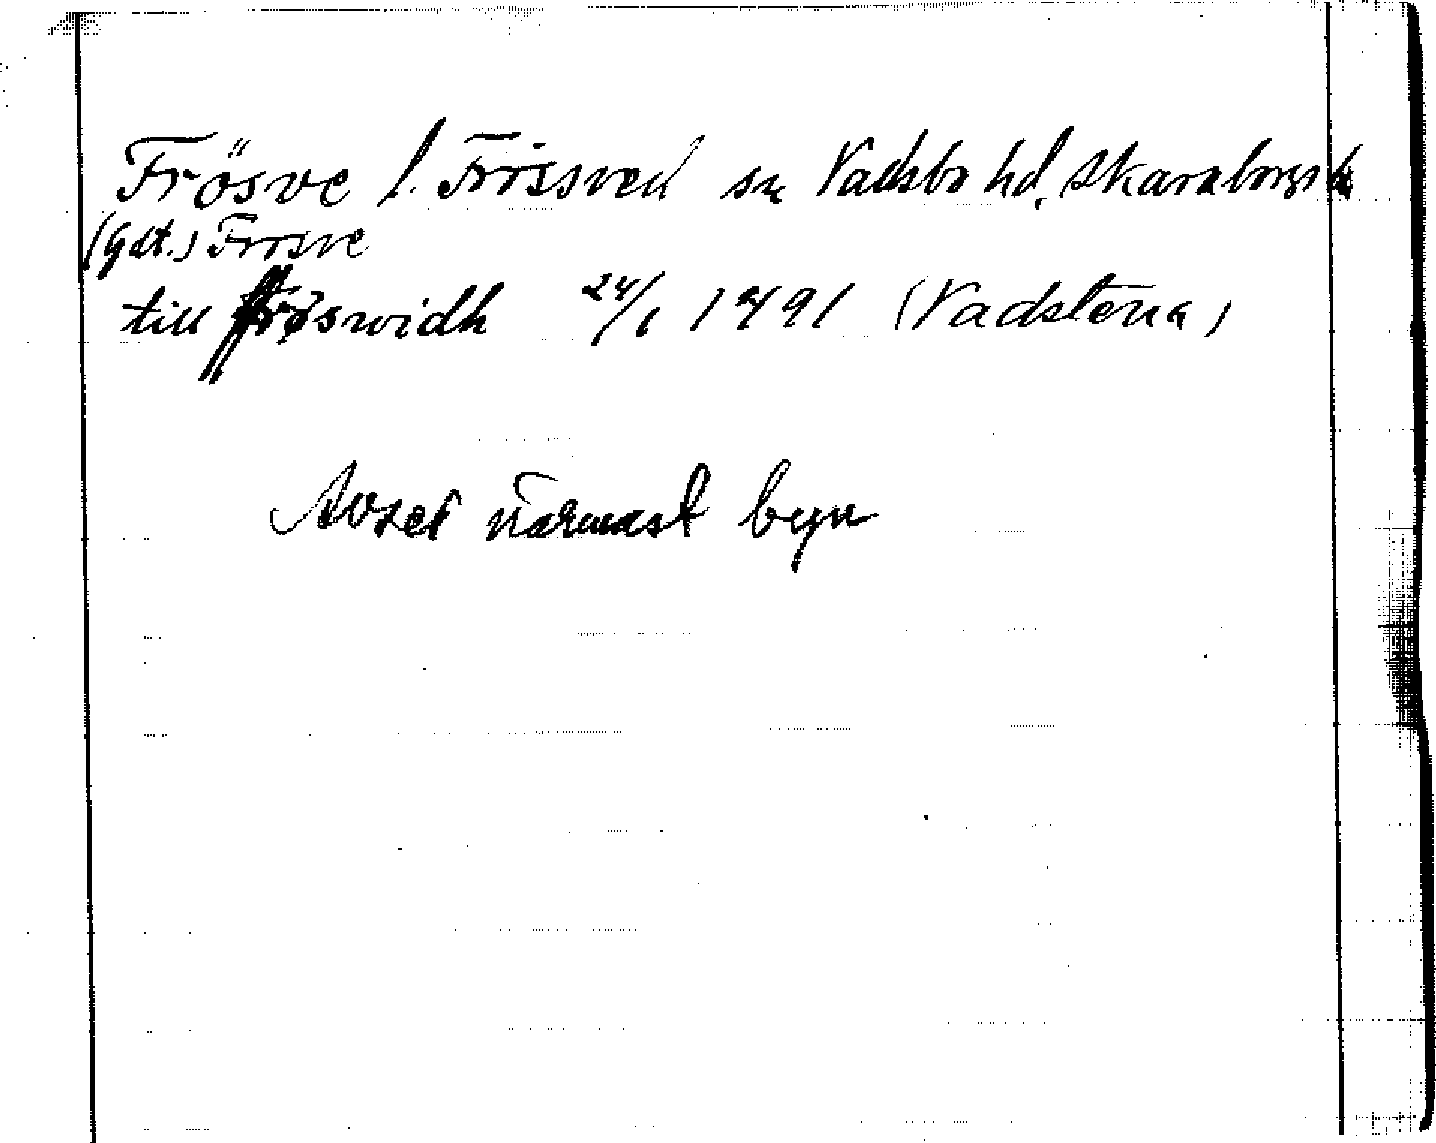 Frösve f. Frössved sn Vadsbo hd, Skaraborgs l.
(Gdt.) Frösve
till ffrøswidh 24/1 1491 (Vadstena)
Avser närmast byn